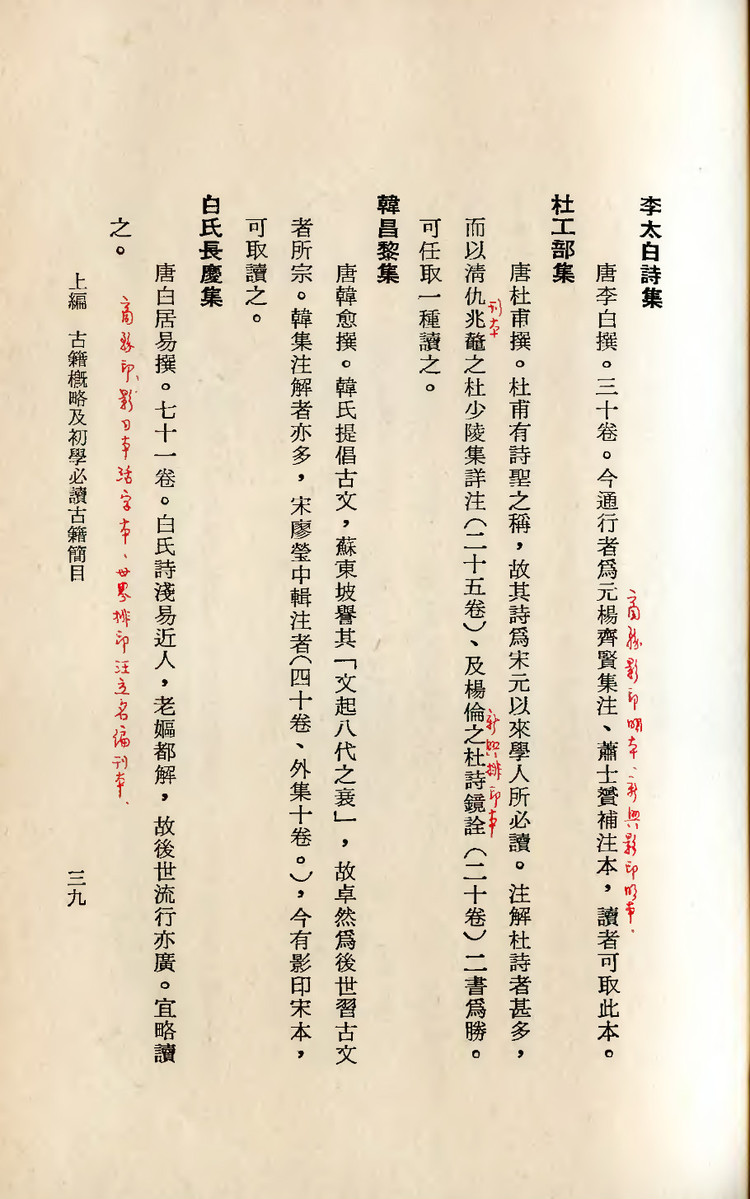 李太白詩集
唐李白撰。三十卷。今通行者爲元楊齊賢集注、蕭士贇補注本，讀者可取此本。
商務影印明本、新興影印明本.
杜工部集
唐杜甫撰。杜甫有詩聖之稱，故其詩爲宋元以來學人所必讀。注解杜詩者甚多，
而以淸仇兆鼇之杜少陵集詳注（二十五卷）、及楊倫之杜詩鏡詮（二十卷）二書爲勝。
刊本
新興排印本
可任取一種讀之。
韓昌黎集
唐韓愈撰。韓氏提倡古文，蘇東坡譽其「文起八代之衰」，故卓然爲後世習古文
者所宗。韓集注解者亦多，宋廖瑩中輯注者（四十卷、外集十卷。），今有影印宋本，
可取讀之。
白氏長慶集
唐白居易撰。七十一卷。白氏詩淺易近人，老嫗都解，故後世流行亦廣。宜略讀
之。
商務印、影日本活字本、世界排印汪立名編刊本.
上編　古籍槪略及初學必讀古籍簡目
三九